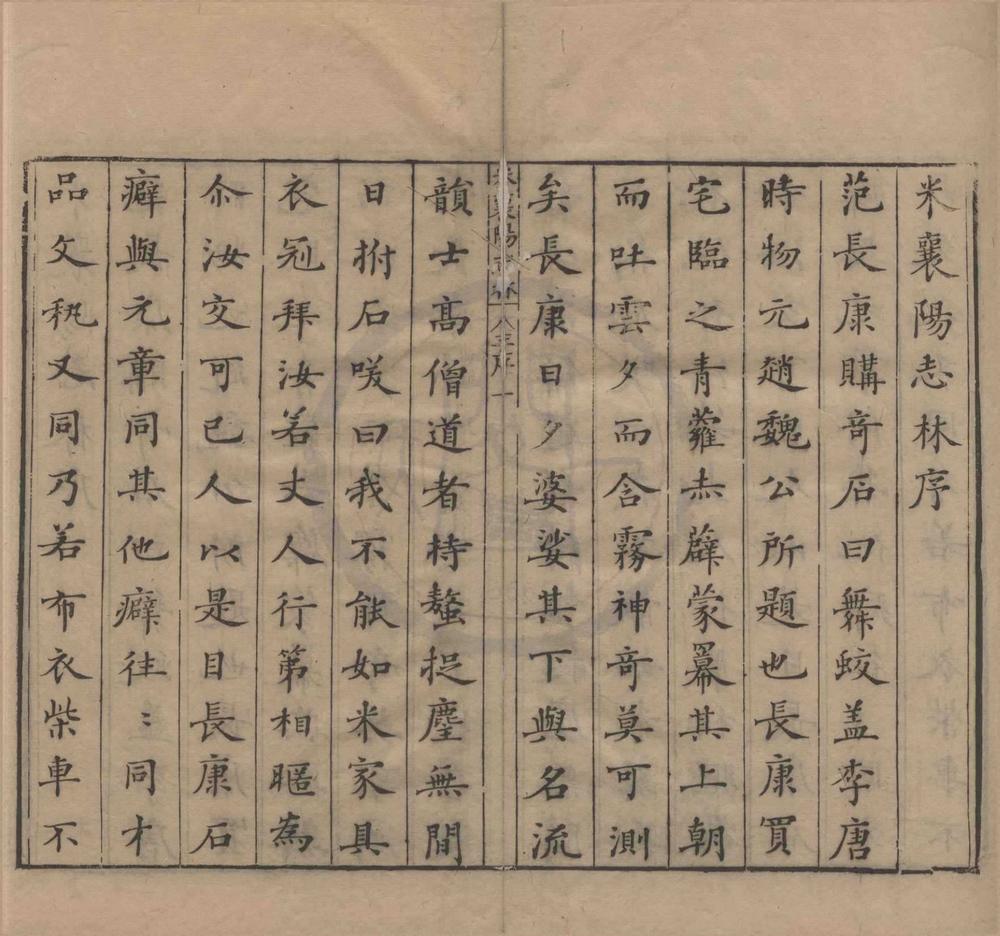 米襄陽志林序
范長康購竒石曰舞蛟盖李唐
時物元趙魏公所題也長康買
宅臨之青蘿赤薜蒙羃其上朝
而吐雲夕而含霧神竒莫可測
矣長康日夕婆娑其下與名流
韻士高僧道者持螯捉麈無間
日拊石咲曰我不能如米家具
衣冠拜汝若丈人行第相暱為
尒汝交可已人以是目長康石
癖與元章同其他癖往〻同才
品文秇又同乃若布衣柴車不